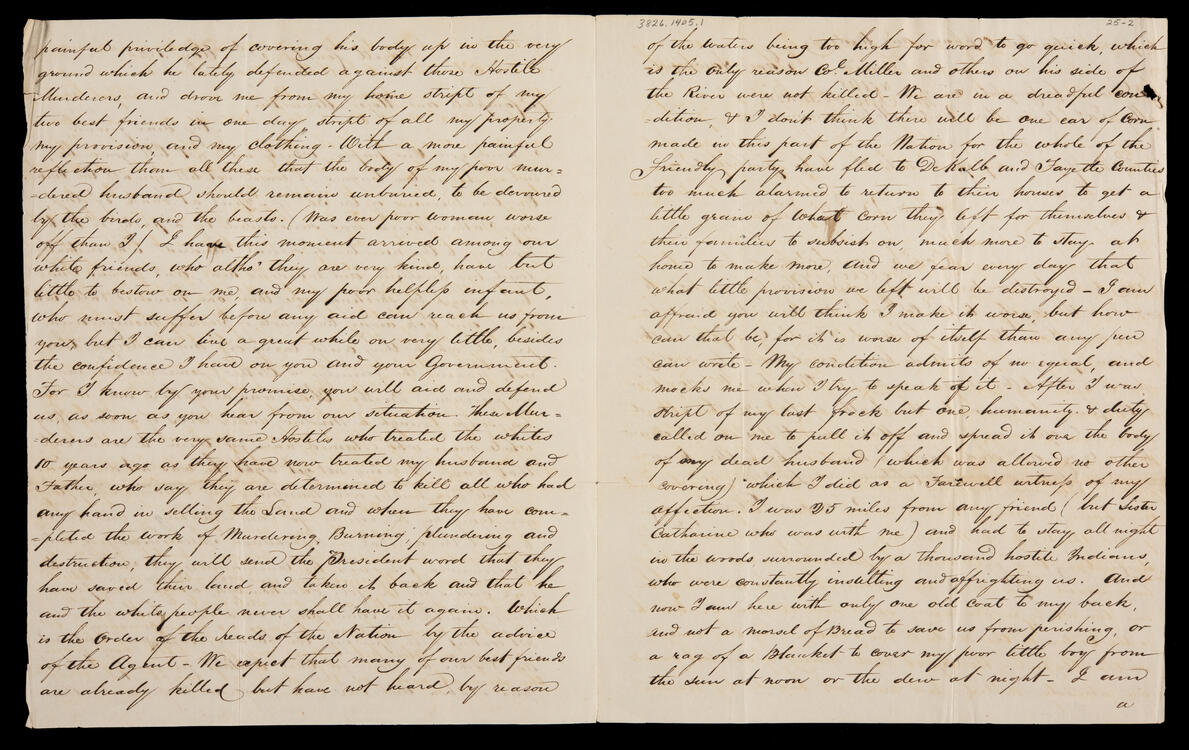 painful priviledge of covering his body up in the very
ground which he lately defended against those Hostile
Murderers, and drove me from my home stript of my
two best friends in one day stript of all my property
my provision, and my clothing - With a more painful
reflection than all these that the body of my poor mur=
=dered husband should remain unburied, to be devoured
by the birds, and the beasts. (Was ever poor woman worse
off than I) I have this moment arrived among our
white friends, who altho' they are very kind, have but
little to bestow on me, and my poor helpless infant,
who must suffer before any aid can reach us from
you, but I can live a great while on very little, besides
the confidence I have on you and your Government.
For I know by your promise, you will aid and defend
us, as soon as you hear from our situation. These Mur=
=derers are the very same Hostiles who treated the whites
10 years ago as they have now treated my husband and
Father, who say they are determined to kill all who had
any hand in selling the Land and when they have com=
=pleted the work of Murdering, Burning, plundering and
destruction, they will send the President word that they
have saved their land, and taken it back and that he
and the white people never shall have it again. Which
is the order of the heads of the Nation by the advice
of the Agent - We expect that many of our best friends
are already killed, but have not heard, by reason
3826.1405.1
25-2
of the waters being too high for word to go quick, which
is the only reason Col. Miller and others on his side of
the River were not killed - We are in a dreadful con
=dition, & I dont think there will be one ear of Corn
made in this part of the Nation for the whole of the
Friendly party have fled to DeKalb and Fayette Counties
too much alarmed to return to their houses to get a
little grain of what corn they left for themselves &
their families to subsist on, much more to stay at
home to make more, and we fear every day that
what little provision we left will be destroyed - I am
affraid you will think I make it worse, but how
can that be, for it is worse of itself than any pen
can write - My condition admits of no equal, and
mocks me when I try to speak of it. After I was
stript of my last frock but one, humanity & duty
called on me to pull it off and spread it over the body
of my dead husband (which was allowed no other
covering) which I did as a Farewell witness of my
affection. I was 25 miles from any friend (but Sister
Catharine who was with me) and had to stay all night
in the woods surrounded by a thousand hostile Indians,
who were constantly insulting and affrighting us. And
now I am here with only one old Coat to my back,
and not a morsel of Bread to save us from perishing, or
a rag of a Blanket to cover my poor little boy from
the sun at noon or the dew at night - I am
a